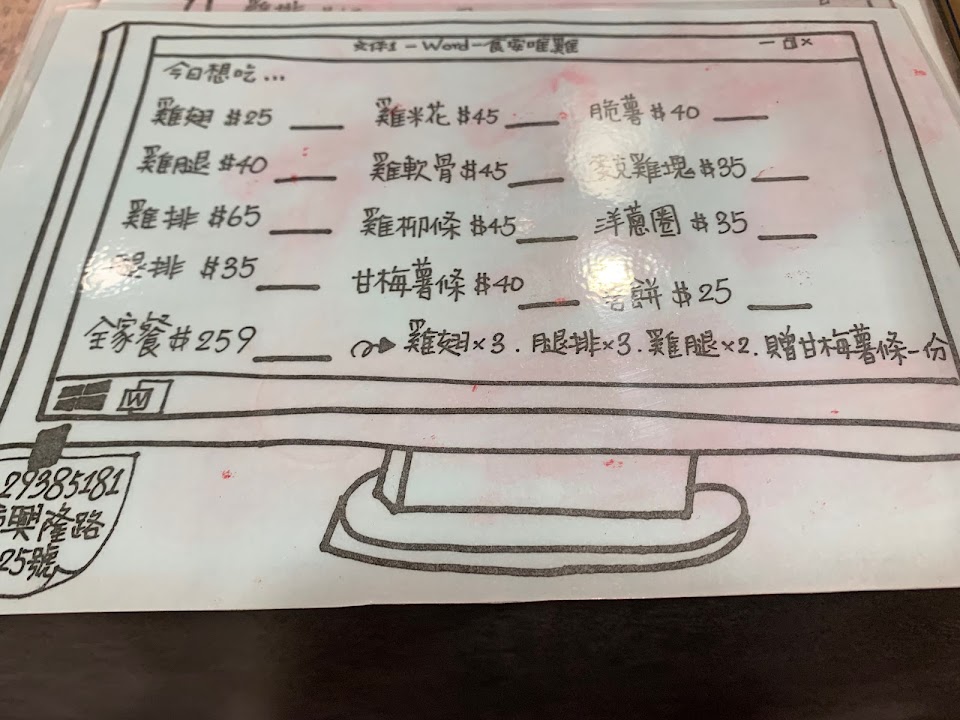 文件1-Word-食安唯雞
今日想吃...
雞翅 $25 ___ 雞米花 $45 ___ 脆薯 $40 ___
雞腿 $40 ___ 雞軟骨 $45 ___ 麥克雞塊 $35 ___
雞排 $65 ___ 雞柳條 $45 ___ 洋蔥圈 $35 ___
腿排 $35 ___ 甘梅薯條 $40 ___ 薯餅 $25 ___
全家餐 $259 ___ 雞翅×3.腿排×3.雞腿×2.贈甘梅薯條一份
W
29385181
興隆路
25號